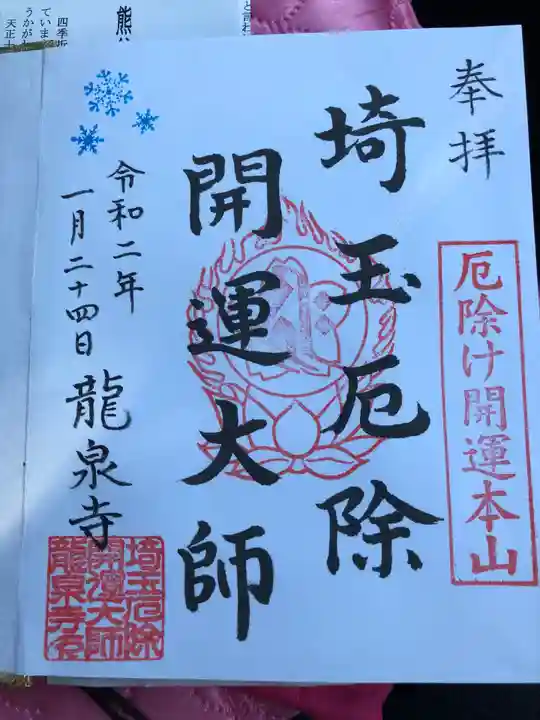 奉拝
厄除け開運本山
埼玉厄除
開運大師
令和二年
一月二十四日
龍泉寺
埼玉厄除
開運大師
龍泉寺
熊
四季折
ていま
うかが
天正十